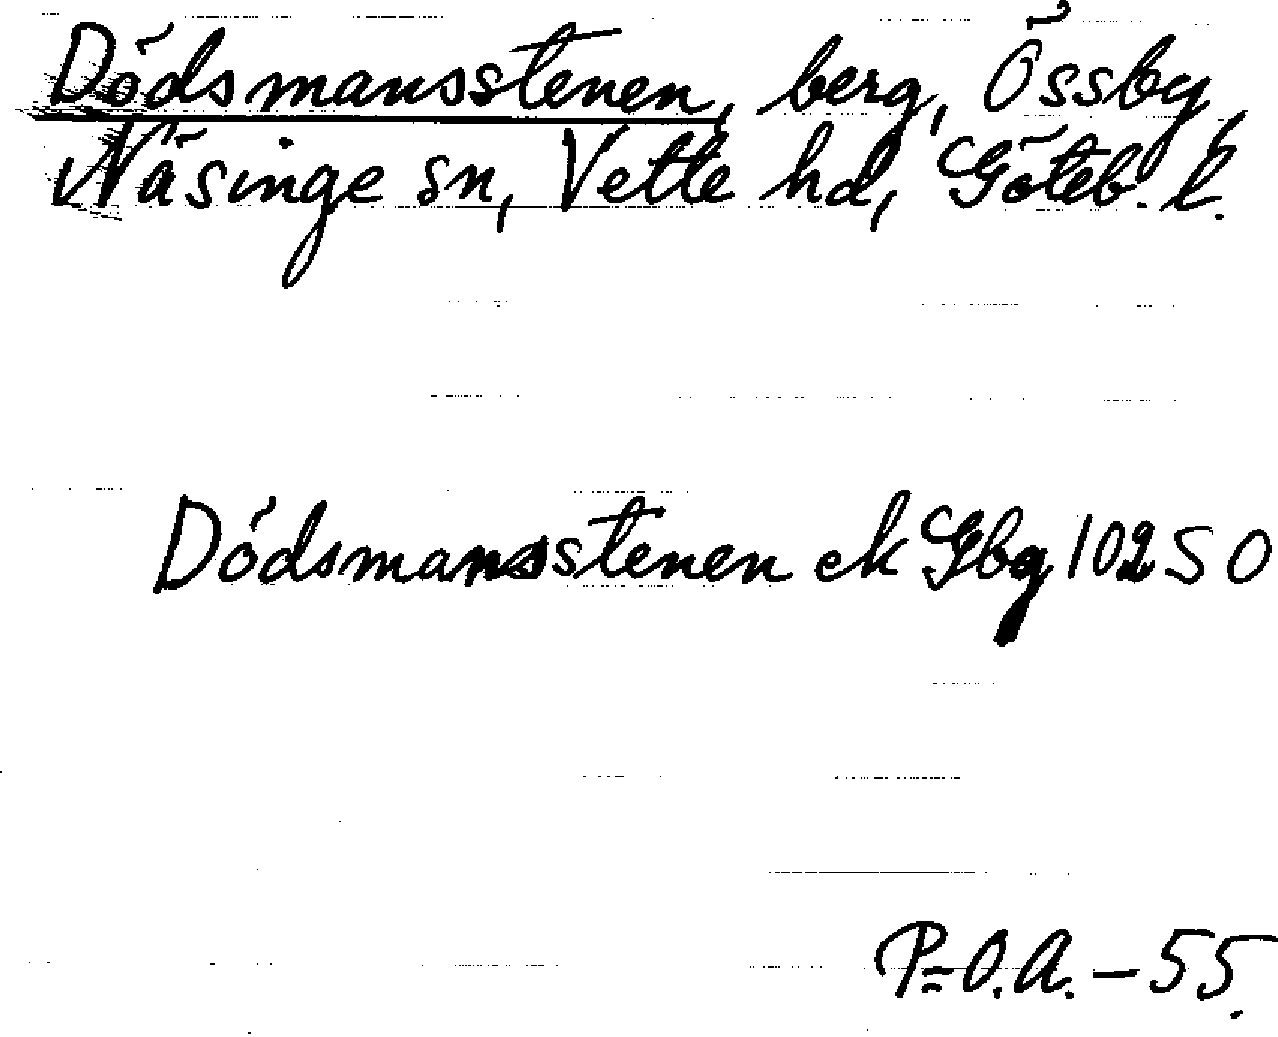 Dödsmansstenen, berg, Össby,
Näsinge sn, Vette hd, Göteb. l.
Dödsmansstenen ek Gbg 10250
P=O.A. - 55.